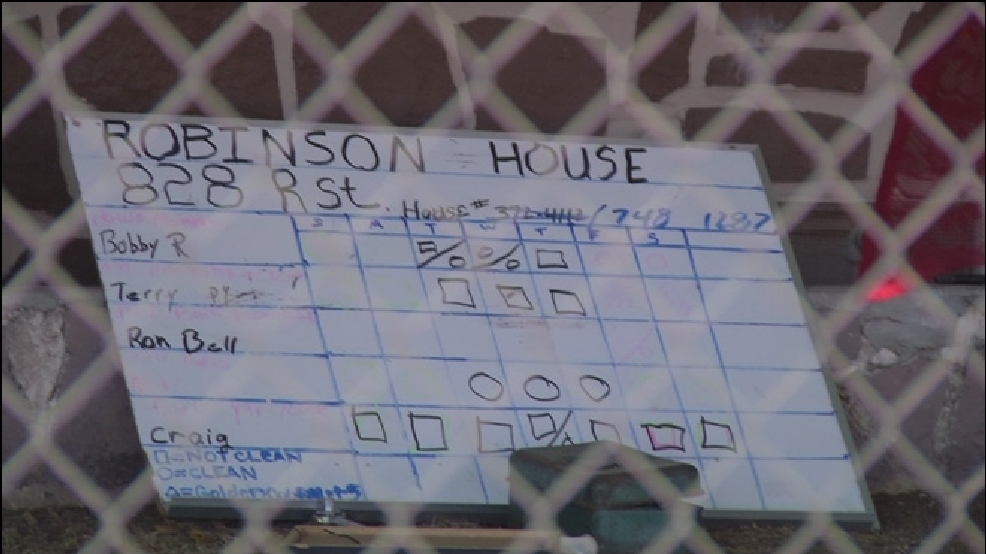 ROBINSON HOUSE
828 R St. House # 372-4142 / 748 1287
S M T W T F S
Bobby R
Terry
Ron Bell
Craig
□=NOT CLEAN
O=CLEAN